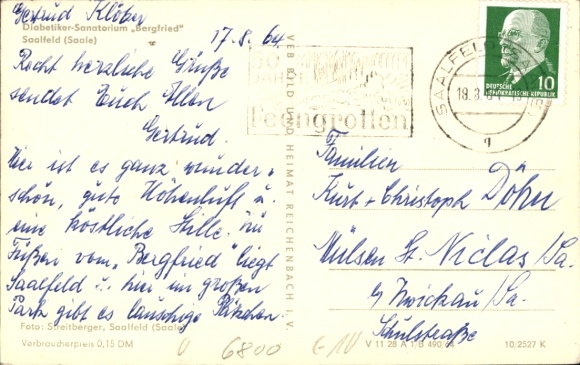 Gertrud Klöber
Diabetiker-Sanatorium „Bergfried"
Saalfeld (Saale)
17.8.64.
Recht herzliche Grüße
sendet Euch Allen
Gertrud.
Hier ist es ganz wunder-
schön, gute Höhenluft u.
eine köstliche Stille. Zu
Füßen vom „Bergfried" liegt
Saalfeld u. hier im großen
Park gibt es lauschige Plätzchen.
Foto: Streitberger, Saalfeld (Saale)
Verbraucherpreis 0,15 DM
VEB BILD UND HEIMAT REICHENBACH I. V.
50
JAHRE
Feengrotten
SAALFELD
18.8.64
DEUTSCHE
DEMOKRATISCHE REPUBLIK
10
Familien
Kurt + Christoph Döhn
Mülsen St. Niclas/Sa.
b/ Zwickau/Sa.
Schulstraße
6800
V 11 28 A 1/B 490/64
10/2527 K